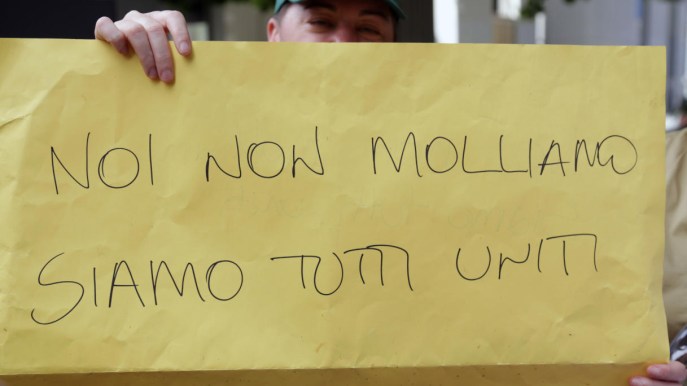 NOI NON MOLLIAMO
SIAMO TUTTI UNITI